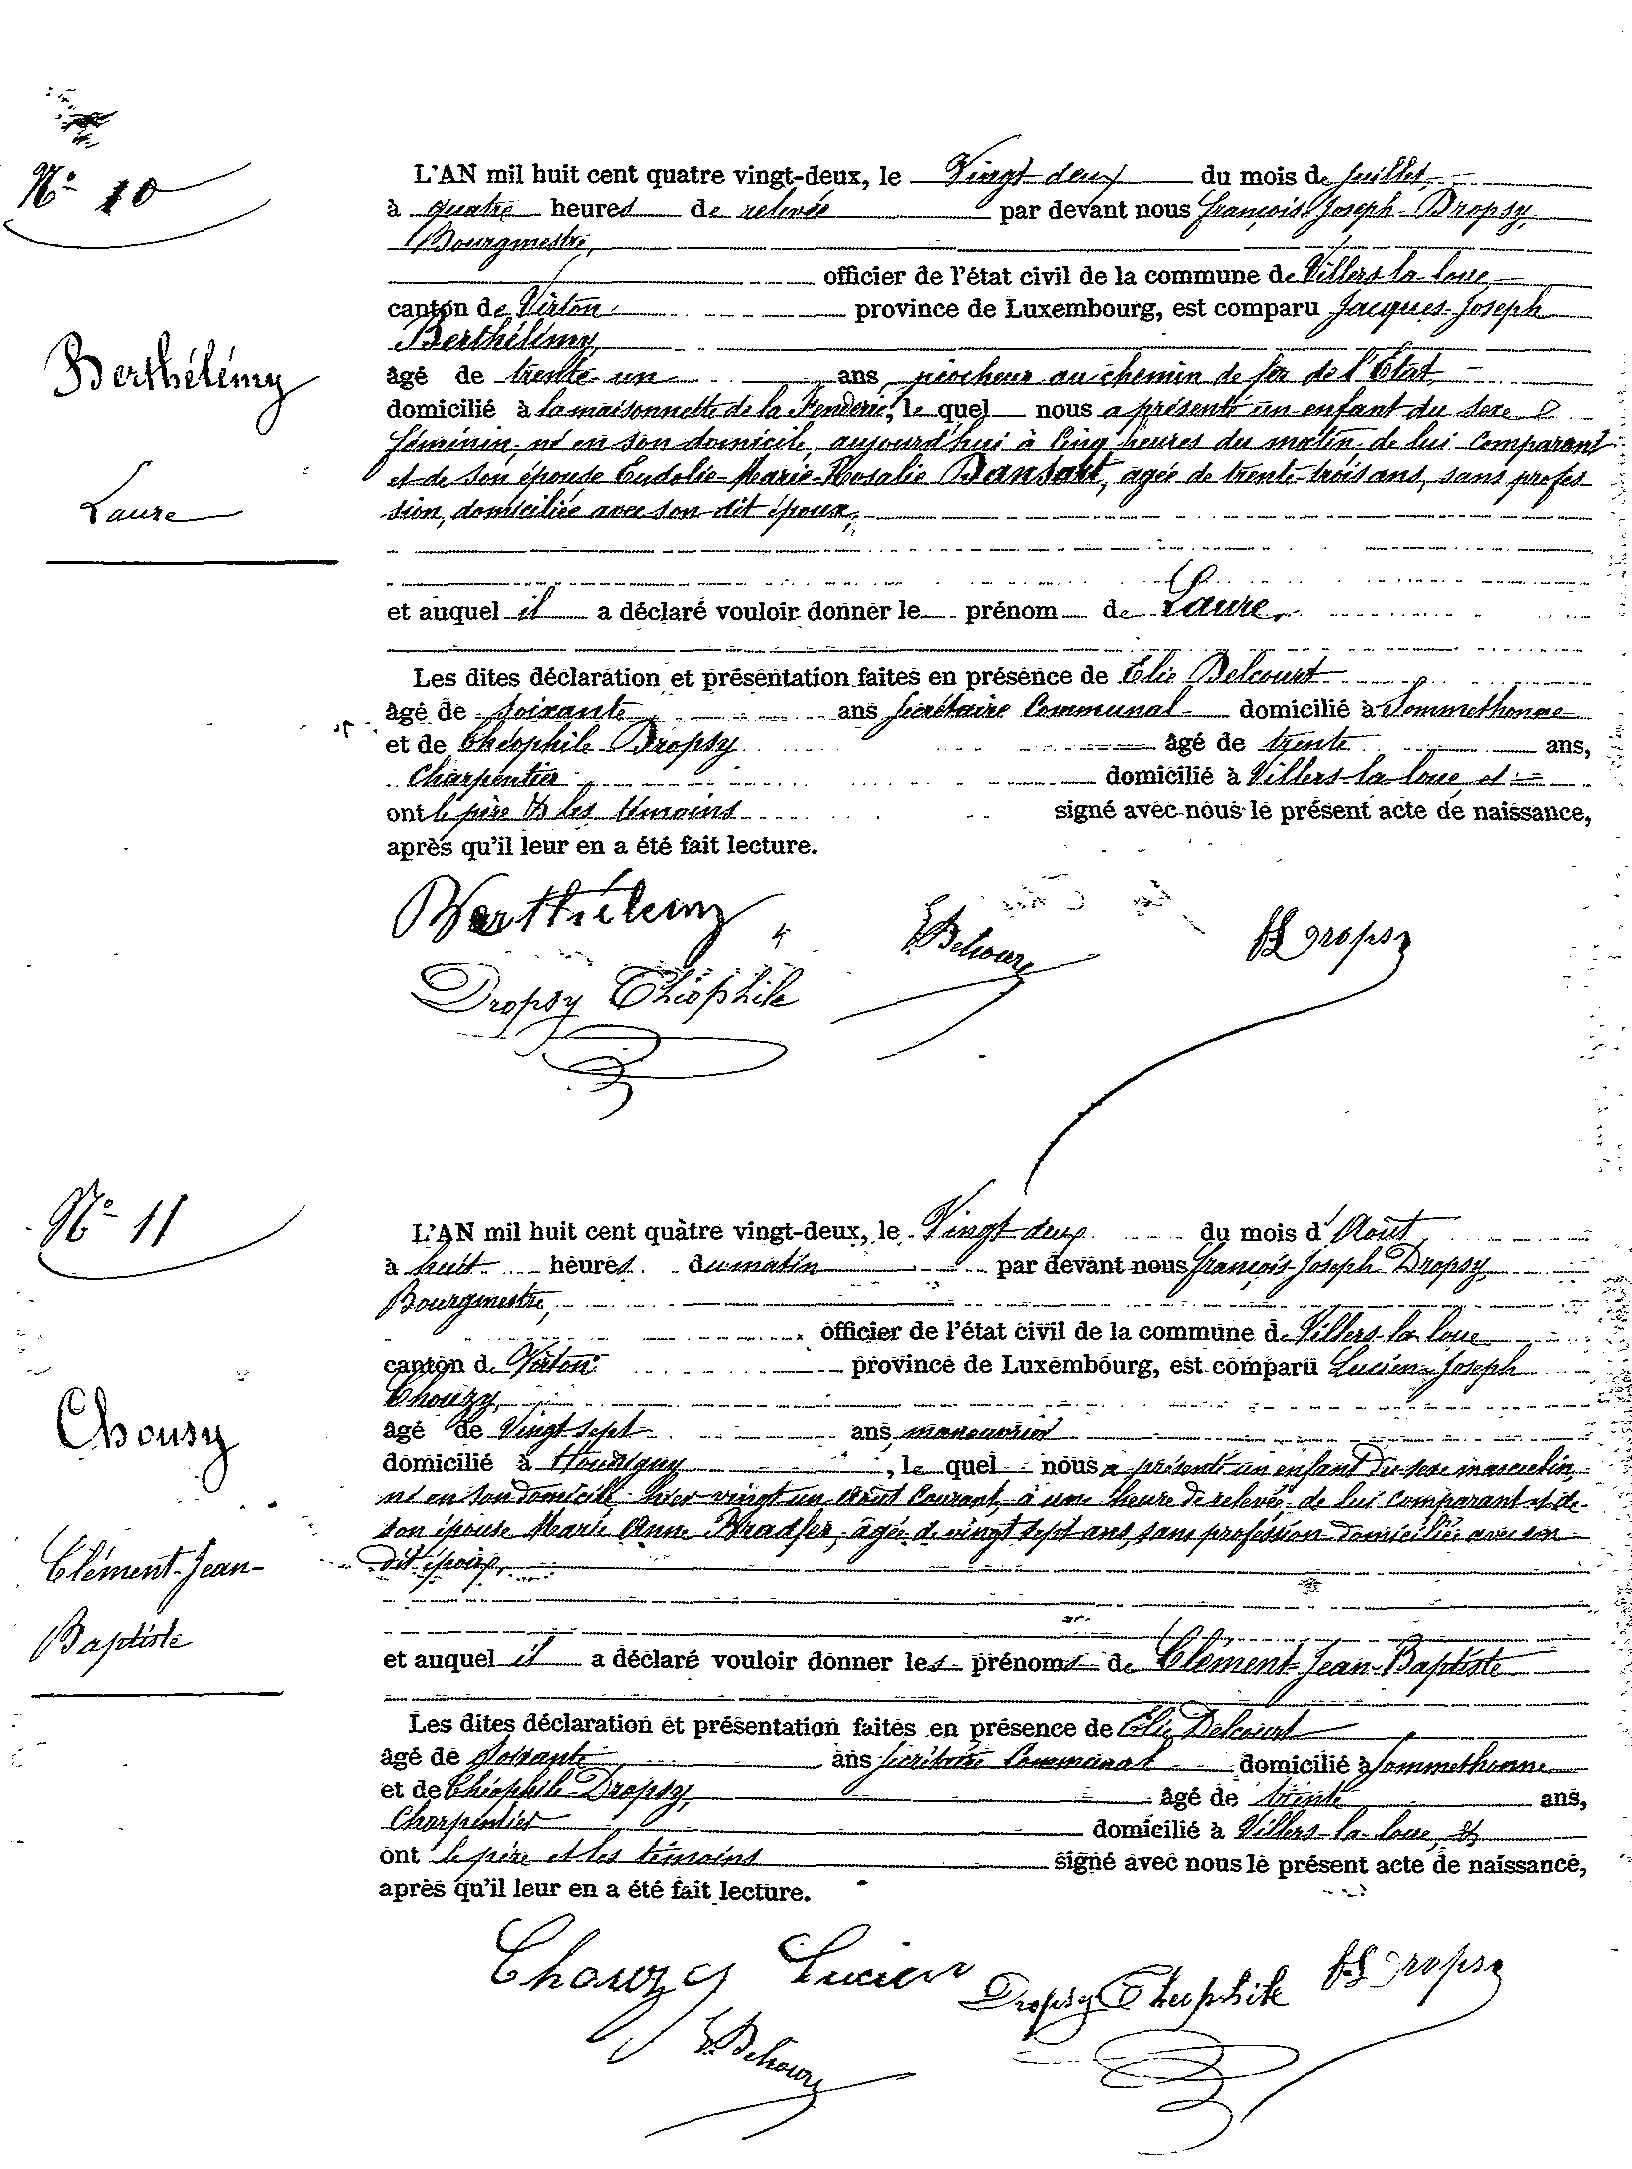 N° 10
L'AN mil huit cent quatre vingt-deux, le Vingt deux du mois de Juillet,
à quatre heures de relevée par devant nous François Joseph Dropsy,
Bourgmestre,
officier de l'état civil de la commune de Villers-la-loue
canton de Virton province de Luxembourg, est comparu Jacques-Joseph
Berthélémy
Berthélémy,
âgé de trente-un ans, piocheur au chemin de fer de l'État
domicilié à la maisonnette de la Fenderie, le quel nous a présenté un enfant du sexe
féminin, né en son domicile, aujourd'hui à cinq heures du matin de lui comparant
et de son épouse Eudolie-Marie-Rosalie Dansart, agée de trente-trois ans, sans profes
Laure
sion, domiciliée avec son dit époux,
et auquel il a déclaré vouloir donner le prénom de Laure,
Les dites déclaration et présentation faites en présence de Elie Delcourt
âgé de soixante ans Secrétaire Communal domicilié à Sommethonne
et de Théophile Dropsy âgé de trente ans,
Charpentier domicilié à Villers-la-loue et
ont le père & les témoins signé avec nous le présent acte de naissance,
après qu'il leur en a été fait lecture.
Berthélemy E. Delcourt Dropsy
Dropsy Théophile
N° 11
L'AN mil huit cent quatre vingt-deux, le Vingt deux du mois d'Août
à huit heures du matin par devant nous François-Joseph Dropsy,
Bourgmestre,
officier de l'état civil de la commune de Villers-la-loue
canton de Virton province de Luxembourg, est comparu Lucien-Joseph
Chouzy,
Chousy
âgé de Vingt sept ans, manouvrier
domicilié à Houdrigny, le quel nous a présenté un enfant du sexe masculin,
né en son domicile, hier vingt un août courant, à une heure de relevée de lui comparant et de
son épouse Marie Anne Bradfer, âgée de vingt sept ans, sans profession domiciliée avec son
Clément-Jean-
dit époux,
Baptiste
et auquel il a déclaré vouloir donner les prénoms de Clément-Jean-Baptiste
Les dites déclaration et présentation faites en présence de Elie Delcourt
âgé de soixante ans Secrétaire Communal domicilié à Sommethonne
et de Théophile Dropsy, âgé de trente ans,
Charpentier domicilié à Villers-la-loue, &
ont le père et les témoins signé avec nous le présent acte de naissance,
après qu'il leur en a été fait lecture.
Chouzy Lucien Dropsy Théophile Dropsy
E. Delcourt